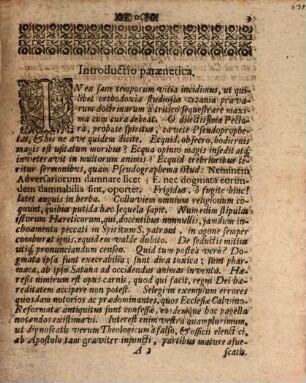 3
Introductio parænetica.
IN ea sane temporum vitia incidimus, ut qui-
libet orthodoxiæ studiosus zizania prava-
rum doctrinarum à tritico sequestrare maxi-
ma cum cura debeat. O dilectissima Pecto-
ra, probate spiritus, cavete Pseudoprophe-
tas, & bis ne ave quidem dicite. Ecquid, obsecro, hodiernis
magis est usitatum moribus? Ecqua opinio magis insedit atq;
inveteravit in multorum animis? Ecquid crebrioribus te-
ritur sermonibus, quam Pseudographema illud: Neminem
Adversariorum damnare licet? E. nec dogmata eorun-
dem damnabilia sint, oportet. Frigidus, ô fugite hinc!
latet anguis in herba. Colluviem omnium religionum co-
quunt, quibus putida hæc sequela sapit. Num enim stipula-
stortum Hæreticorum, qui, docentibus nonnullis, jamdum in-
choamenta peccati in Spiritum S. patrant, in agone semper
comburat ignis, equidem valde ambito. De seductis mitius
utiq; pronunciandum censeo. Quid tum postea verò? Do-
gmata ipsa sunt execrabilia; sunt dira toxica; sunt phar-
maca, ab ipso Satana ad occidendas animas inventa. Hæ-
resis nimirum est opus carnis, quod qui facit, regni Dei hæ-
reditatem accipere non potest. Selegi in exemplum errores
quosdam notorios ac prædominantes, quos Ecclesiæ Calvino-
Reformatæ antiquitus sunt confessæ, eosdemque hac pagella
notandos existimavi. Interest enim vestra quamplurimum,
ut dignoscatis verum Theologicum à falso, & officii elenctici,
ab Apostolo tam graviter injuncti, partibus mature assue-
A 2 scatis.